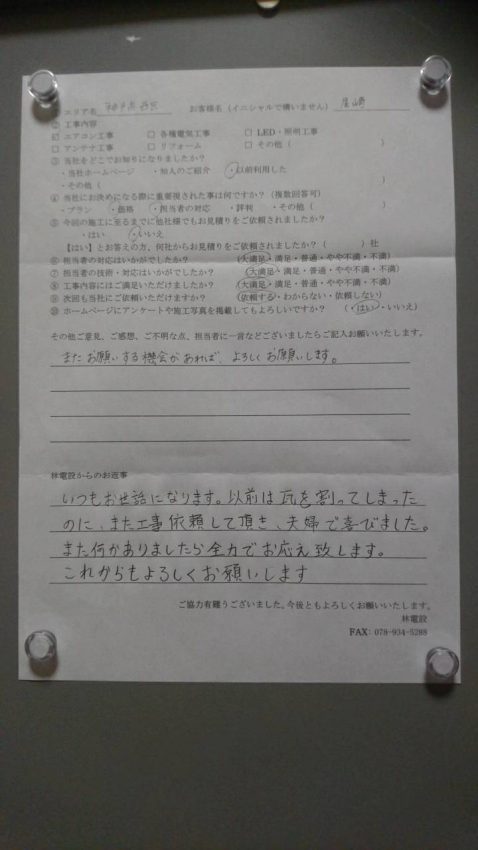 エリア名 神戸市西区 お客様名（イニシャルで構いません）尾崎
② 工事内容
エアコン工事 □ 各種電気工事 □ LED・照明工事
□ アンテナ工事 □ リフォーム □ その他（ ）
③ 当社をどこでお知りになりましたか？
・当社ホームページ ・知人のご紹介 ・以前利用した
・その他（ ）
④ 当社にお決めになる際に重要視された事は何ですか？（複数回答可）
・プラン ・価格 ・担当者の対応 ・評判 ・その他（ ）
⑤ 今回の施工に至るまでに他社様でもお見積りをご依頼されましたか？
・はい ・いいえ
【はい】とお答えの方、何社からお見積りをご依頼されましたか？（ ）社
⑥ 担当者の対応はいかがでしたか？ （大満足・満足・普通・やや不満・不満）
⑦ 担当者の技術・対応はいかがでしたか？ （大満足・満足・普通・やや不満・不満）
⑧ 工事内容にはご満足いただけましたか？ （大満足・満足・普通・やや不満・不満）
⑨ 次回も当社にご依頼いただけますか？ （依頼する・わからない・依頼しない）
⑩ ホームページにアンケートや施工写真を掲載してもよろしいですか？ （・はい・いいえ）
その他ご意見、ご感想、ご不明な点、担当者に一言などございましたらご記入お願いいたします。
またお願いする機会があれば、よろしくお願いします。
林電設からのお返事
いつもお世話になります。以前は瓦を割ってしまった
のに、また工事依頼して頂き、夫婦で喜びました。
また何かありましたら全力でお応え致します。
これからもよろしくお願いします
ご協力有難うございました。今後ともよろしくお願いいたします。
林電設
FAX: 078-934-5288